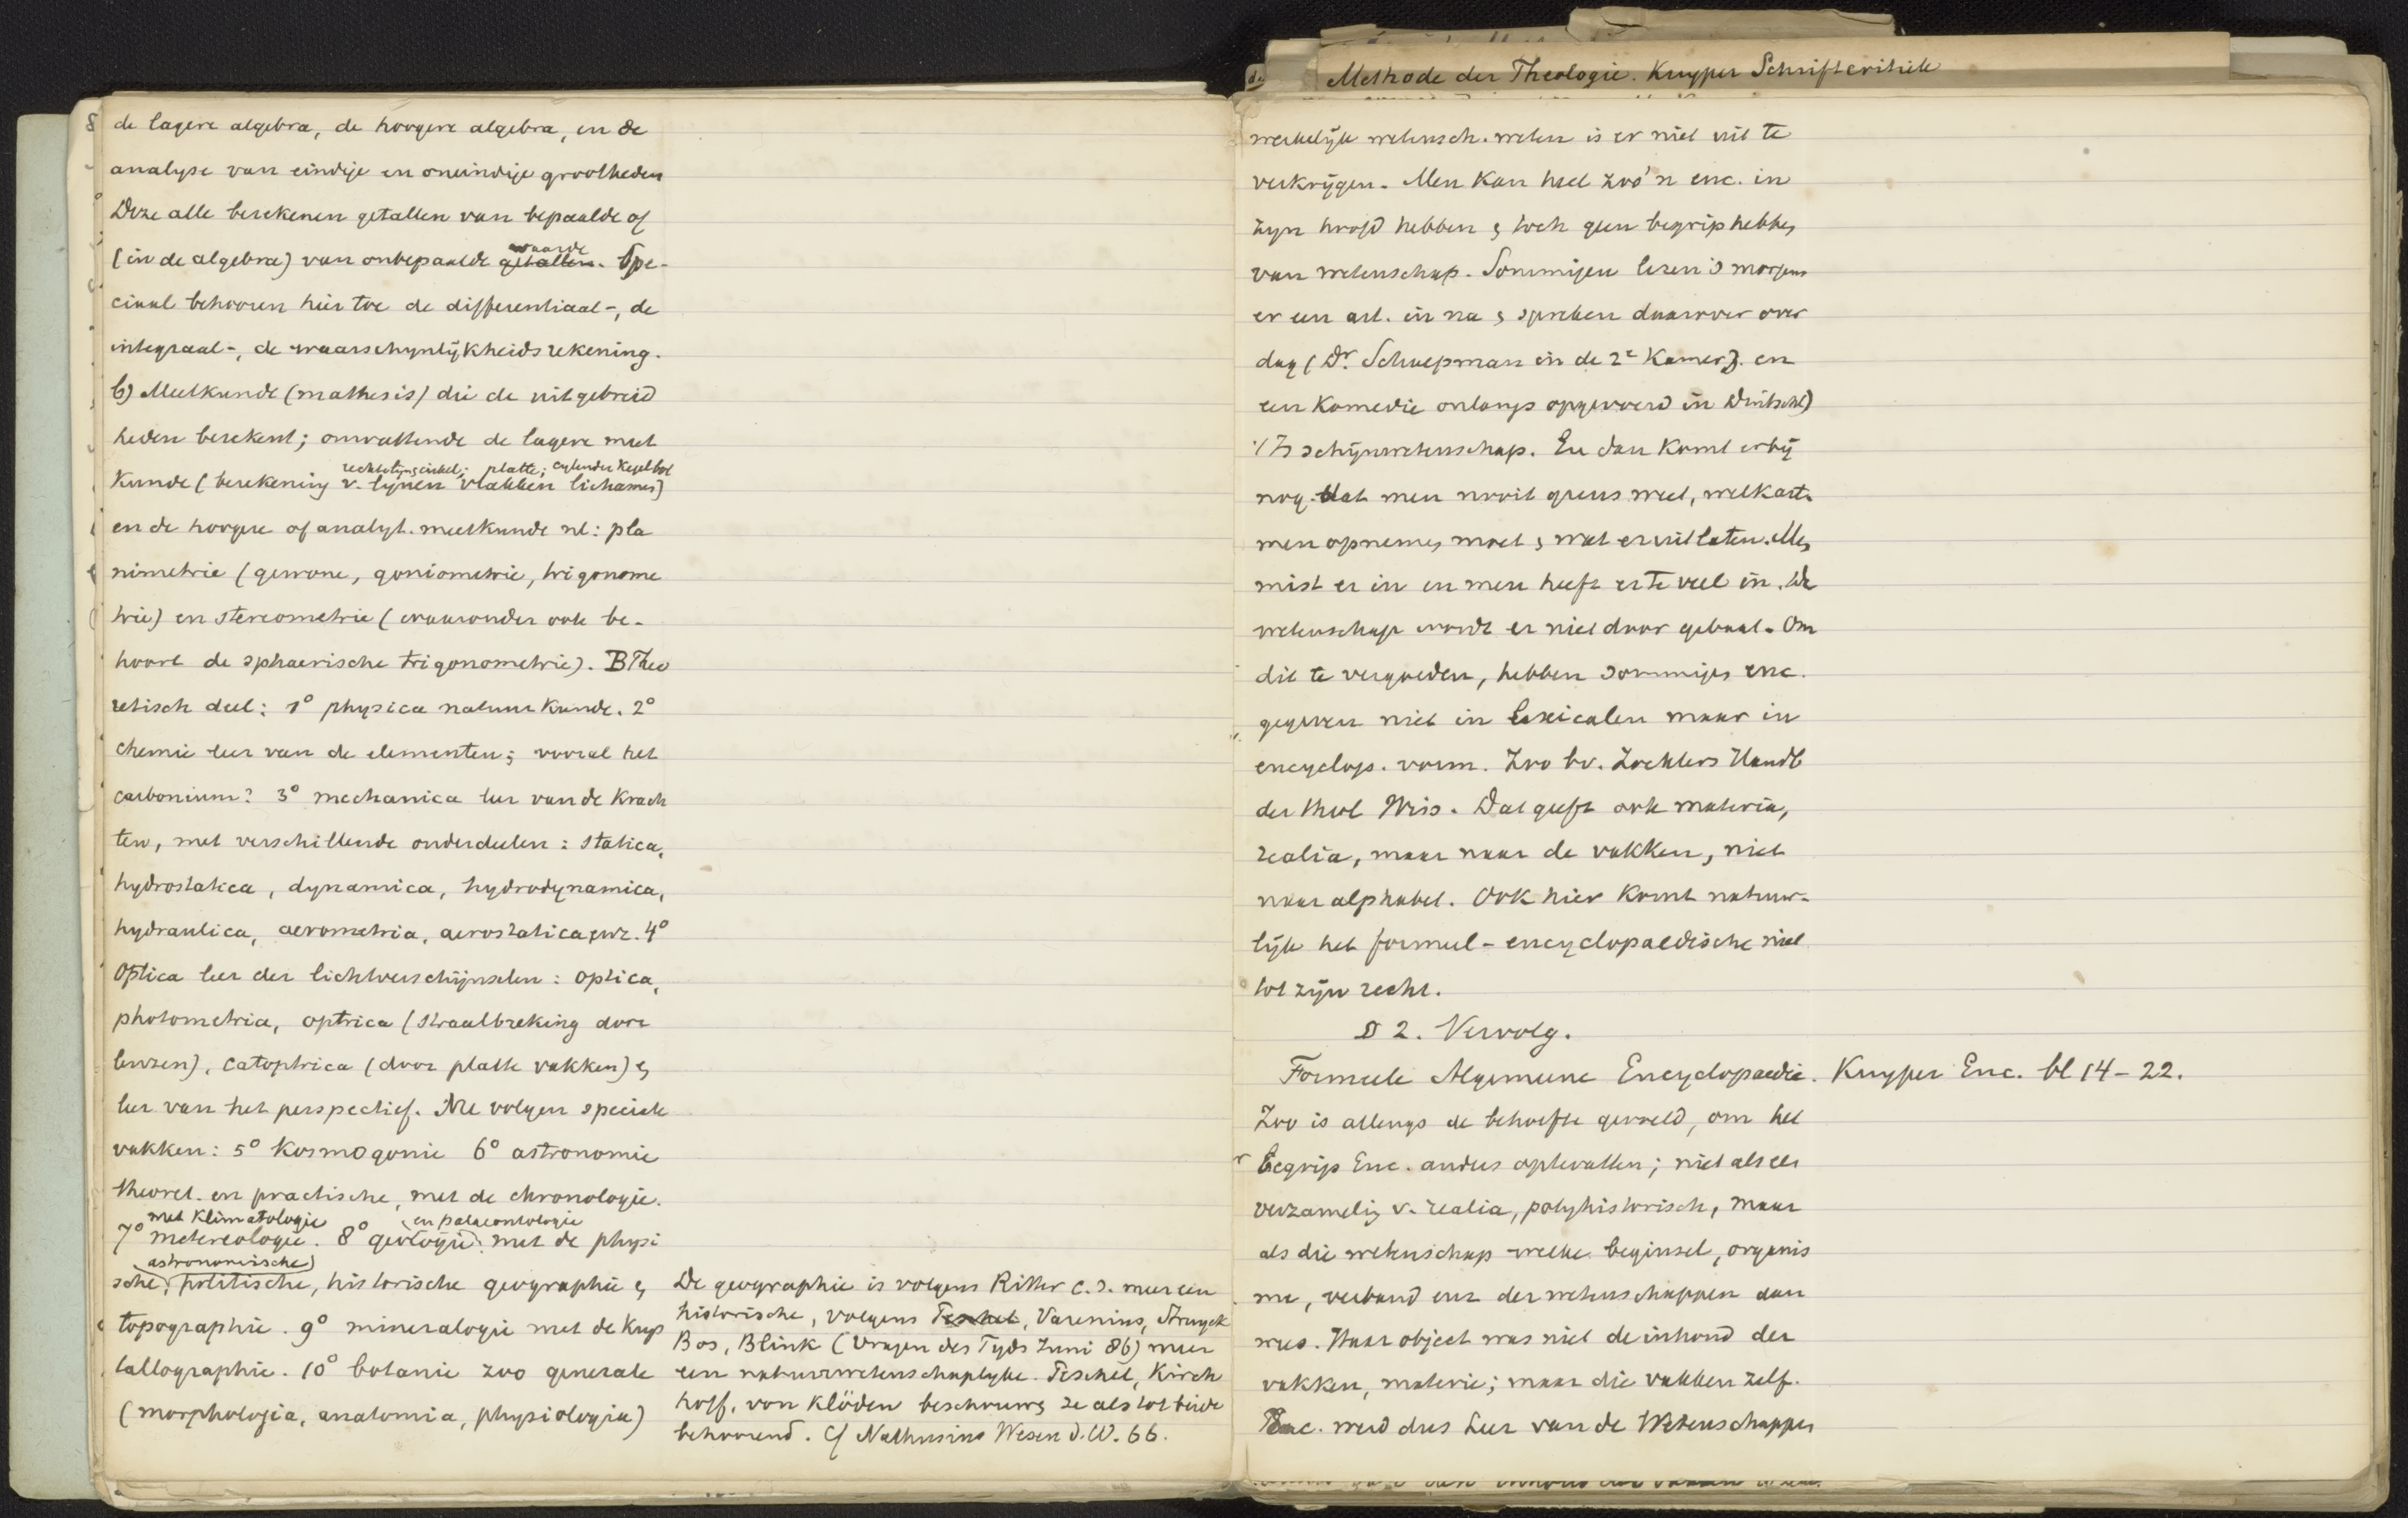 de lagere algebra, de hoogere algebra, en de
analyse van eindige en oneindige grootheden
Deze alle berekenen getallen van bepaalde of
(in de algebra) van onbepaalde getallen waarde. Spe-
ciaal behooren hier toe de differentiaal-, de
integraal-, de waarschynlijkheidsrekening.
b) Meetkunde (mathesis) die de uitgebreid
heden berekent; omvattende de lagere meet
rechtelijn; cirkel; platte; cylinder kegel bol
kunde (berekening v. lynen vlakken lichamen)
en de hoogere of analyt. meetkunde nl: pla
nimetrie (gewone, goniometrie, trigonome
trie) en stereometrie (waaronder ook be-
hoort de sphaerische trigonometrie). B Theo
retisch deel: 1° physica natuurkunde. 2°
chemie leer van de elementen; vooral het
carbonium? 3° mechanica leer van de krach
ten, met verschillende onderdeelen: statica,
hydrostatica, dynamica, hydrodynamica,
hydraulica, aerometria, aerostatica enz. 4°
Optica leer der lichtverschijnselen: optica,
photometria, optrica (straalbreking door
lenzen), catoptrica (door platte vakken) en
leer van het perspectief. Nu volgen speciale
vakken: 5° kosmogonie 6° astronomie
theoret. en practische, met de chronologie.
met klimatologie en palaeontologie
7° metereologie. 8° geologie met de physi
astronomische
sche, politische, historische geographie en
topographie. 9° mineralogie met de krys
tallographie. 10° botanie zoo generale
(morphologia, anatomia, physiologia)
De geographie is volgens Ritter c.s. meer een
historische, volgens Peschel, Varenius, Struyck
Bos, Blink (Vragen des Tyds Juni 86) meer
een natuurwetenschaplyke. Peschel, Kirch
hoff, von Klöden beschouwen ze als tot beide
behoorend. Cf Nathusius Wesen d. W. 66.
Methode der Theologie. Kuyper Schriftcritiek
werkelijk wetensch. weten is er niet uit te
verkrijgen. Men kan heel zoo'n enc. in
zyn hoofd hebben en toch geen begrip hebben
van wetenschap. Sommigen lezen 's morgens
er een art. in na en spreken daarover over
dag (Dr. Schaepman in de 2e Kamer). en
een komedie onlangs opgevoerd in Duitschl)
't Is schijnwetenschap. En dan komt erbij
nog dat men nooit grens weet, welk art.
men opnemen moet en wat er uit laten. Men
mist er in en men heeft er te veel in. De
wetenschap wordt er niet door gebaat. Om
dit te vergoeden, hebben sommigen enc.
gegeven niet in lexicalen maar in
encyclop. vorm. Zoo bv. Zoecklers Handb
der theol Wiss. Dat geeft ook materia,
realia, maar naar de vakken, niet
naar alphabet. Ook hier komt natuur-
lijk het formeel-encyclopaedische niet
tot zijn recht.
§ 2. Vervolg.
Formeele Algemeene Encyclopaedie. Kuyper Enc. bl 14-22.
Zoo is allengs de behoefte gevoeld, om het
begrip Enc. anders optevatten; niet als een
verzameling v. realia, polyhistorisch, maar
als die wetenschap welke beginsel, organis
me, verband enz der wetenschappen aan
wees. Haar object was niet de inhoud der
vakken, materie; maar die vakken zelf.
Enc. werd dus Leer van de Wetenschappen